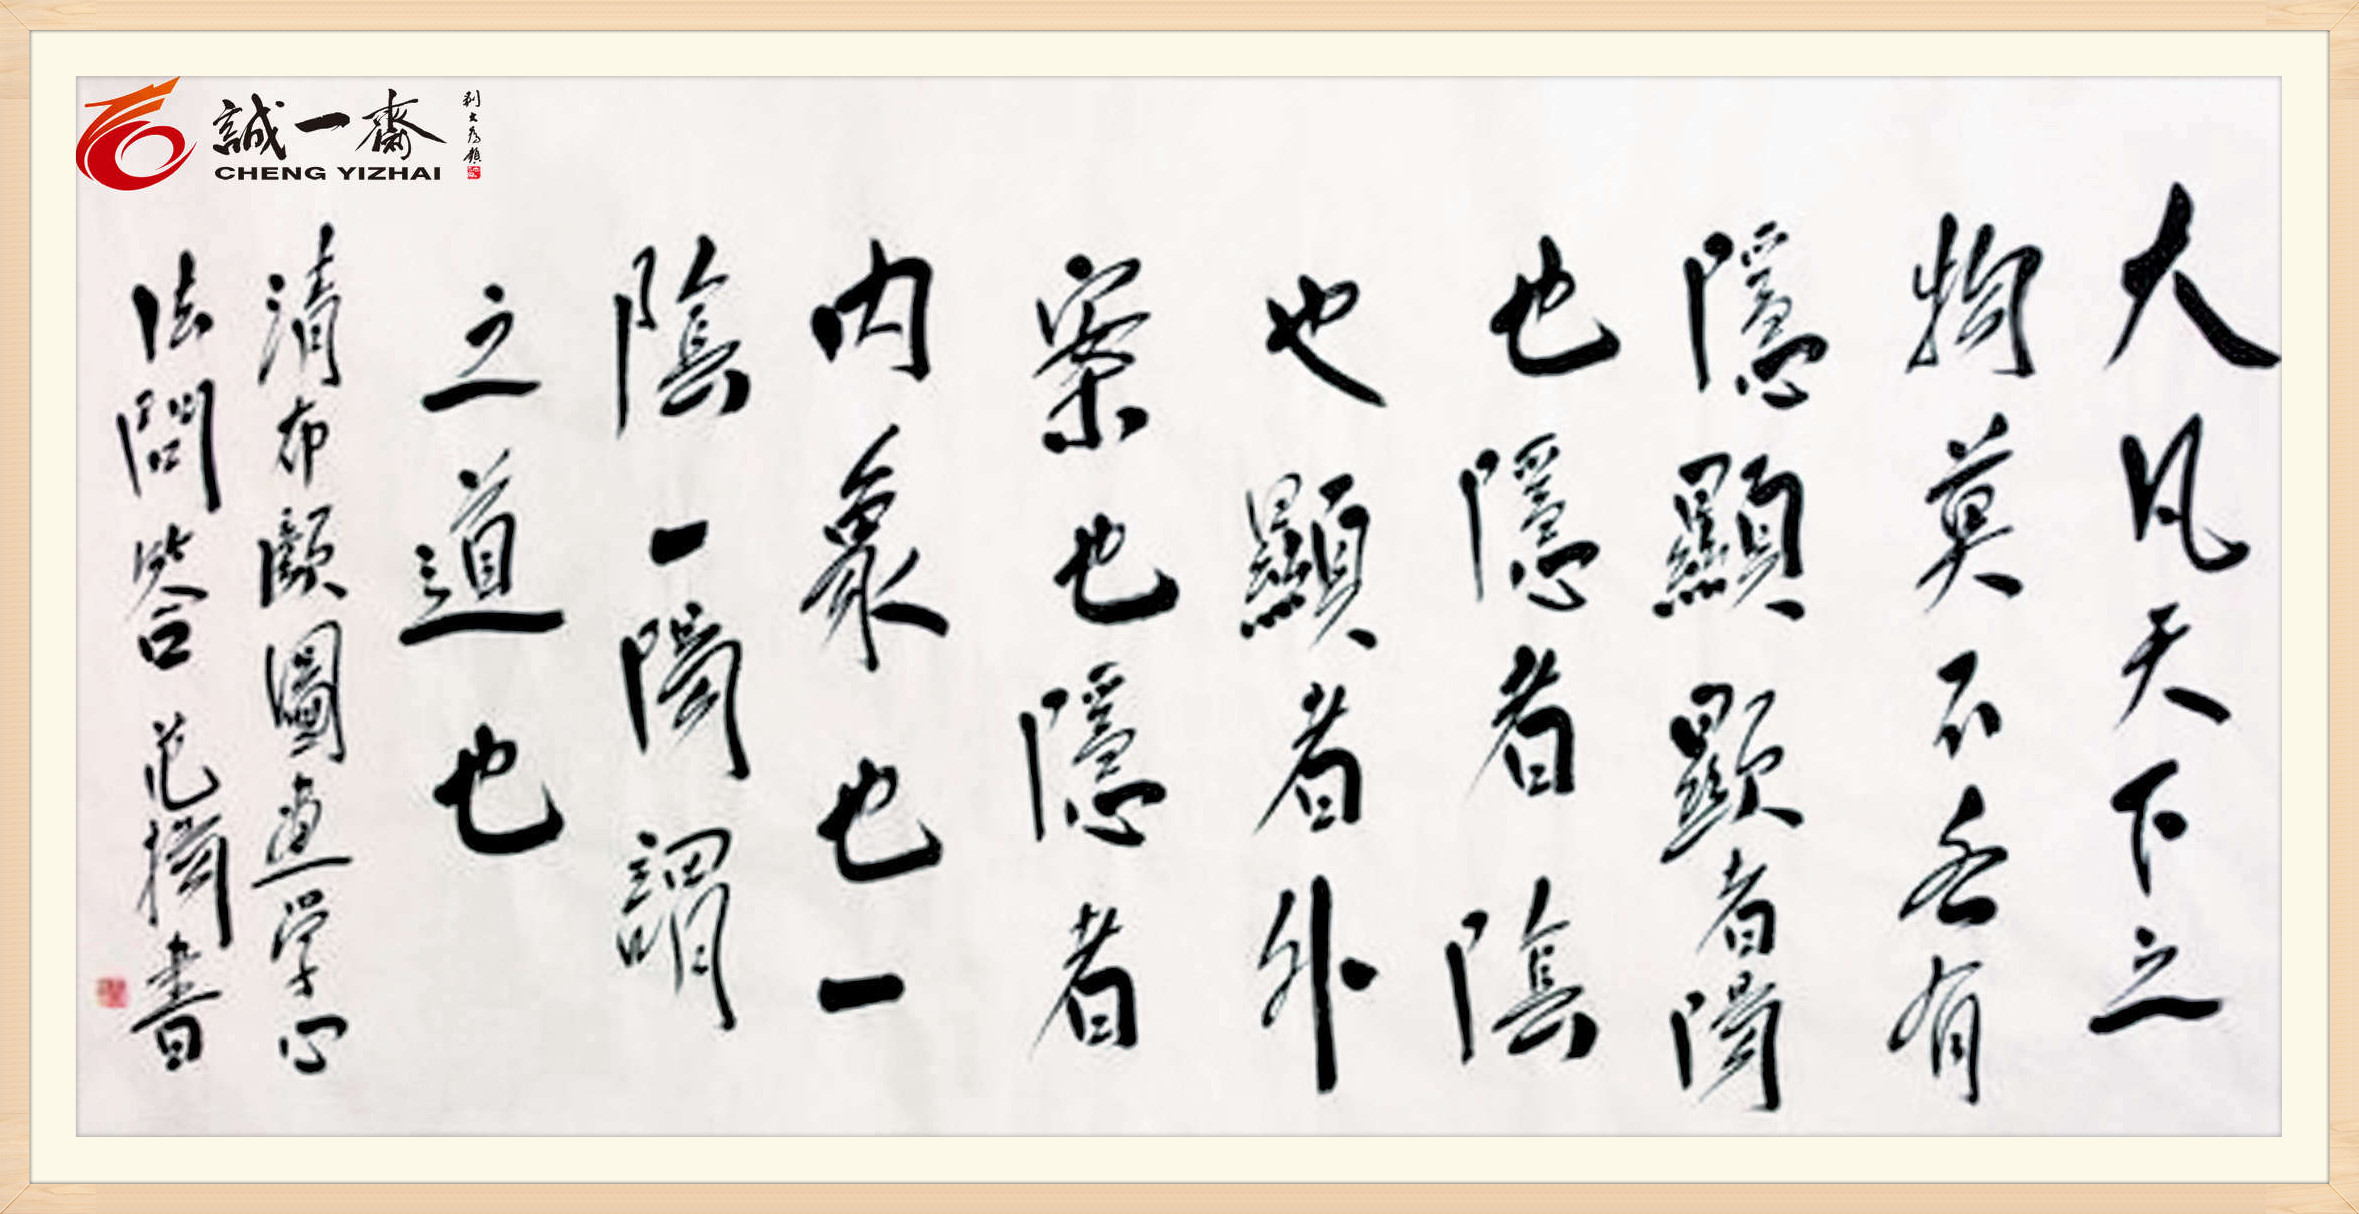 誠一齋
CHENG YIZHAI
刘大为題
大凡天下之
物莫不各有
隱顯顯者陽
也隱者陰
也顯者外
案也隱者
内象也一
陰一陽謂
之道也
清布顏圖畫学心
法問答 范書